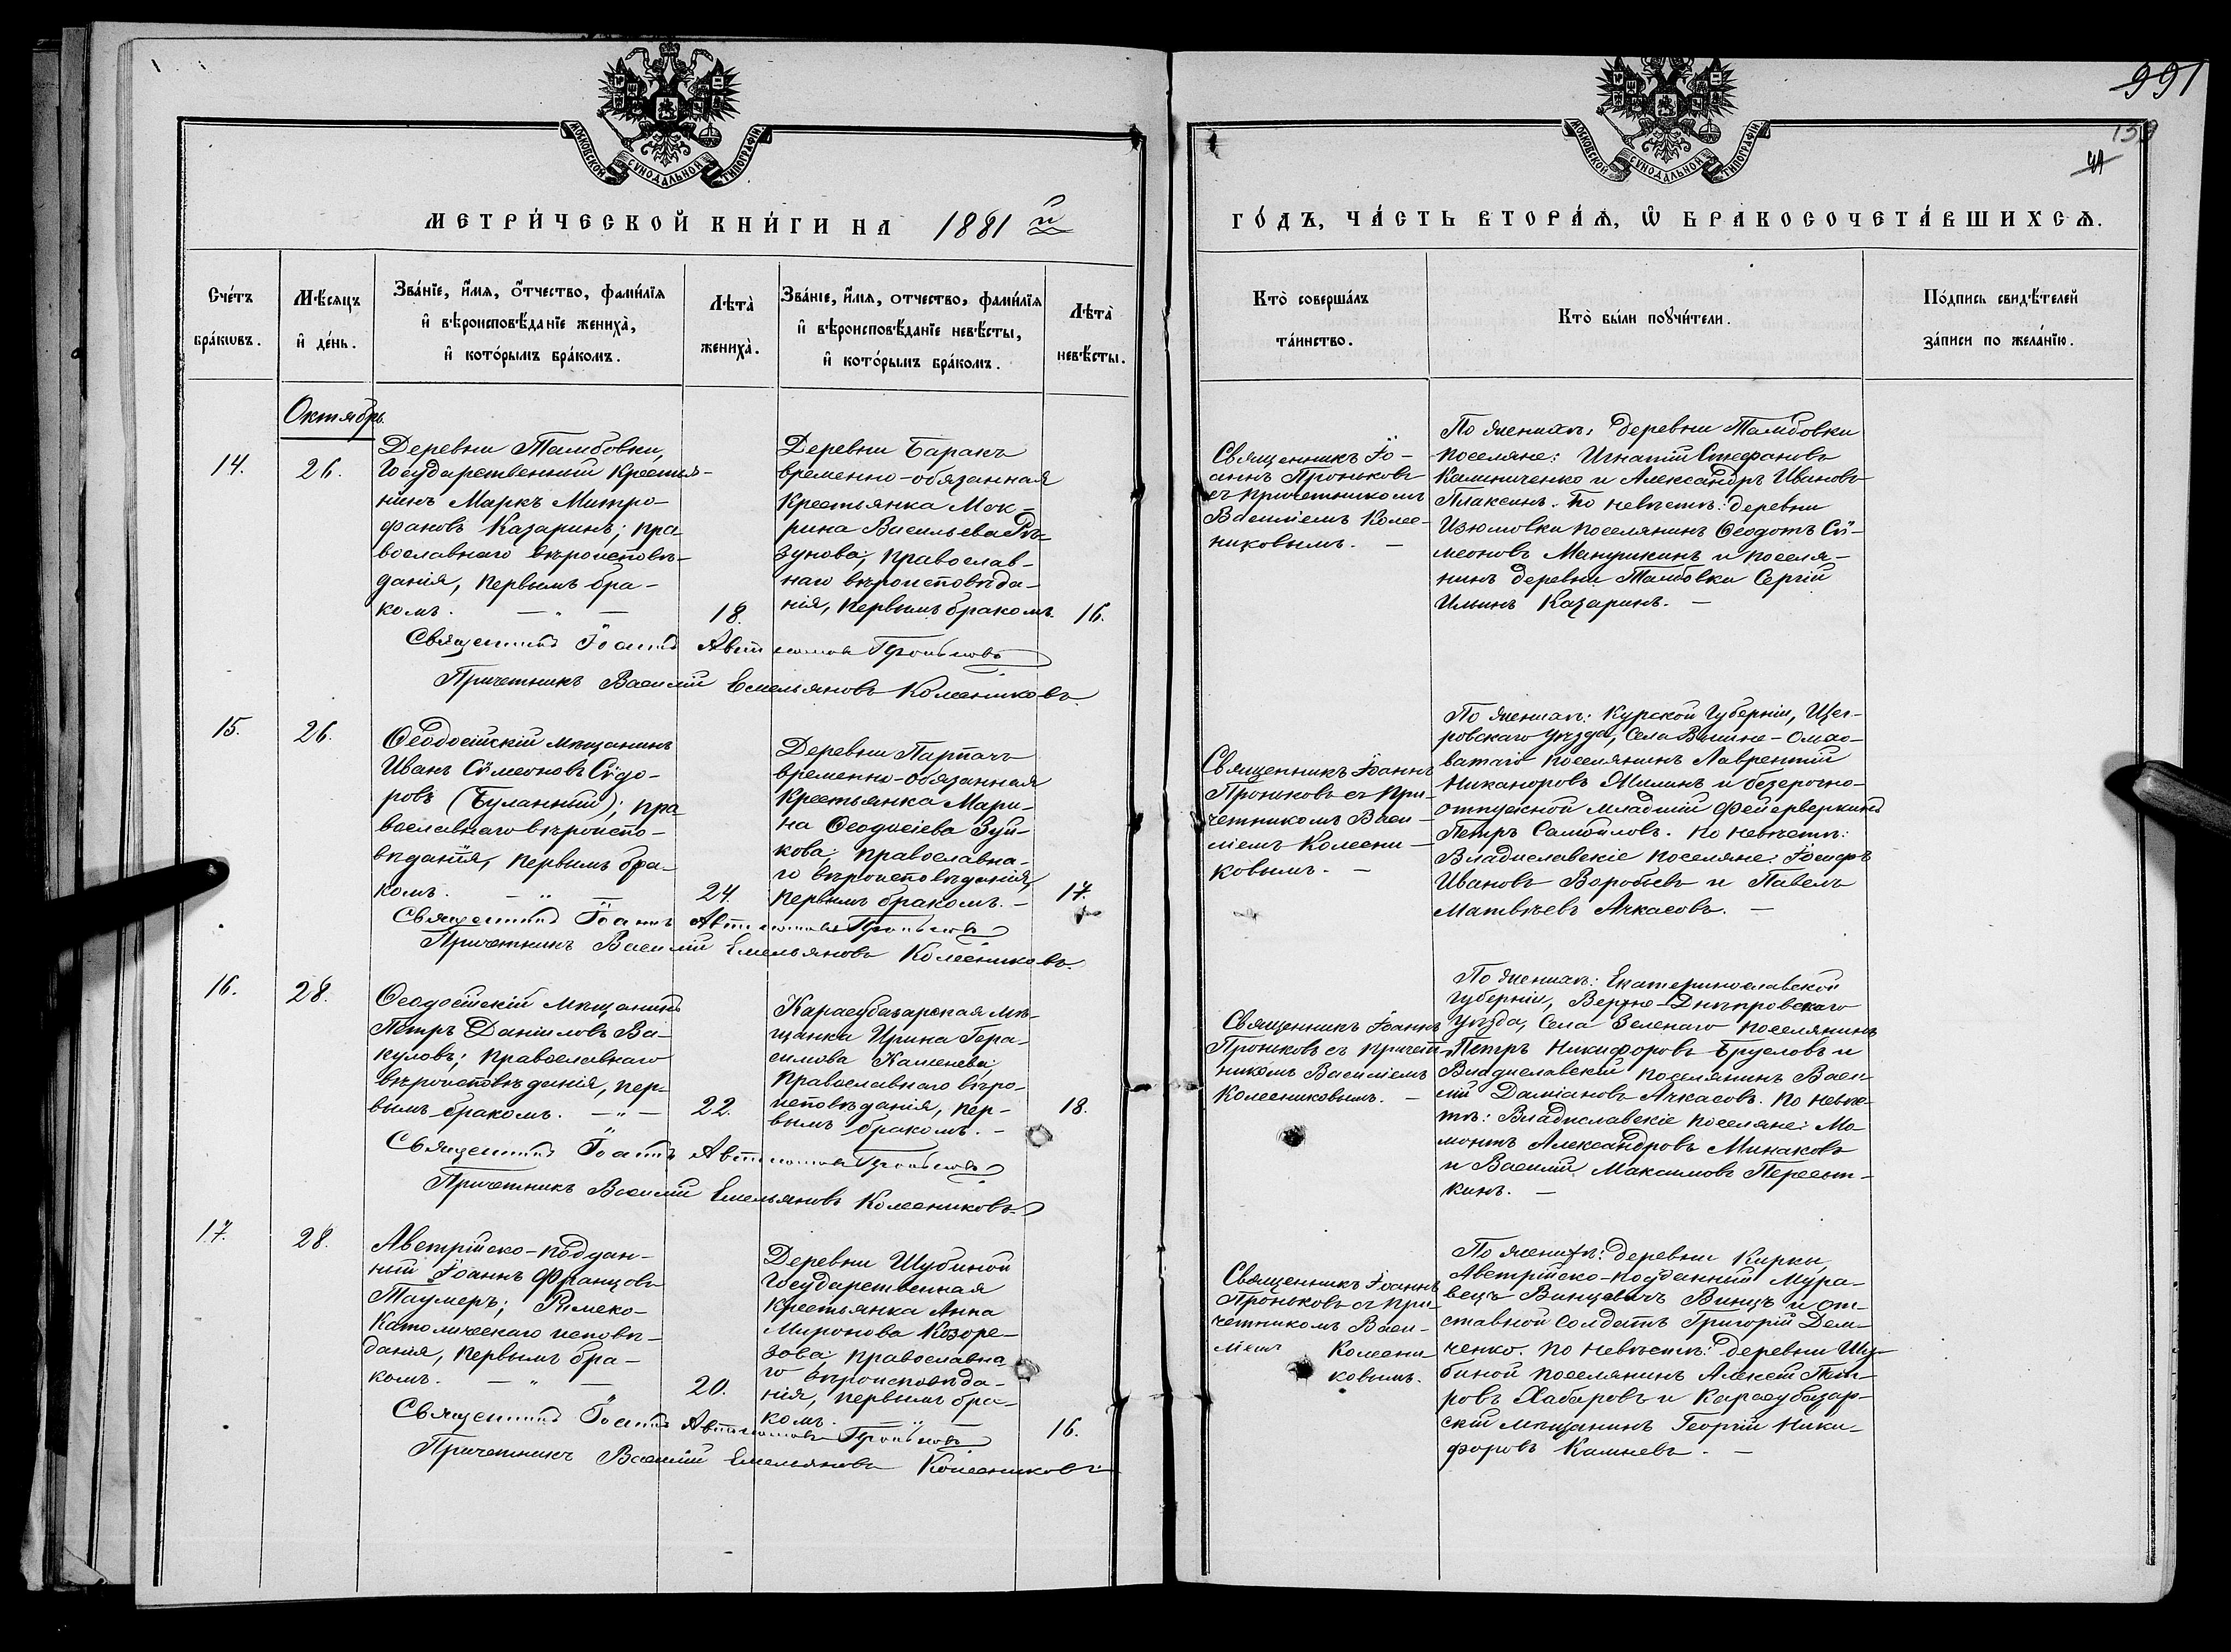 991
159
МОСКОВСКОЙ СѴНОДАЛЬНОЙ ТИПОГРАФІИ
МОСКОВСКОЙ СѴНОДАЛЬНОЙ ТИПОГРАФІИ
МЕТРИ́ЧЕСКОЙ КНИ́ГИ НА 1881 й
ГО́ДЪ, ЧА́СТЬ ВТОРА́Ѧ, Ѡ҆ БРАКОСОЧЕТА́ВШИХСѦ.
Сче́тъ
бра́кѡвъ.
Мѣ́сяцъ
и҆ де́нь.
Зва́нїе, и҆́мя, о҆́тчество, фами́лїя
и҆ вѣроисповѣ́данїе жениха̀,
и҆ кото́рымъ бра́комъ.
Лѣта̀
жениха̀.
Зва́нїе, и҆́мя, отчество, фами́лїя
и҆ вѣроисповѣ́данїе невѣ́сты,
и҆ кото́рымъ бра́комъ.
Лѣта̀
невѣ́сты.
Кто̀ соверша́лъ
та́инство.
Кто̀ бы́ли пору́чи́тели.
По́дпись свидѣ́телей
за́писи по жела́нїю.
Октябрь.
14.
26.
Деревни Тамбовки,
Государственный Крестья-
нинъ Маркъ Митро-
фановъ Казаринъ; пра-
вославнаго вѣроисповѣ-
данія, первымъ бра-
комъ. — „ —
18.
Деревни Баракъ
временно-обязанная
Крестьянка Мок-
рина Васильева Рѣ-
зунова; православ-
наго вѣроисповѣда-
нія, первымъ бракомъ.
16.
Священникъ Іо-
аннъ Проньковъ
съ причетникомъ
Василіемъ Колес-
никовымъ. —
По женихѣ: деревни Тамбовки
поселяне: Игнатій Стефановъ
Калиниченко и Александръ Ивановъ
Плаксинъ. По невѣстѣ: деревни
Изюмовки поселянинъ Ѳеодотъ Сѵ-
меоновъ Манушкинъ и поселя-
нинъ деревни Тамбовки Сергій
Ильинъ Казаринъ. —
Священникъ Іоаннъ Автономовъ Проньковъ
Причетникъ Василій Емельяновъ Колесниковъ.
15.
26.
Ѳеодосійскій мѣщанинъ
Иванъ Сѵмеоновъ Сидо-
ровъ (Буланный); пра-
вославнаго вѣроиспо-
вѣданія, первымъ бра-
комъ. — „ —
24.
Деревни Парпачъ
временно-обязанная
Крестьянка Мари-
на Ѳеодосіева Зуй-
кова; православна-
го вѣроисповѣданія,
первымъ бракомъ. —
17.
Священникъ Іоаннъ
Проньковъ съ при-
четникомъ Васи-
ліемъ Колесни-
ковымъ. —
По женихѣ: Курской Губерніи, Щег-
ровскаго уѣзда, села
поселянинъ Лаврентій
Никаноровъ Жилинъ и безсрочно-
отпускной младшій фейерверкинъ
Петръ Самойловъ. По невѣстѣ:
Владиславскіе поселяне: Іосифъ
Ивановъ Воробьевъ и Павелъ
Матвѣевъ Ачкасовъ. —
Священникъ Іоаннъ Автономовъ Проньковъ
Причетникъ Василій Емельяновъ Колесниковъ.
16.
28.
Ѳеодосійскій Мѣщанинъ
Петръ Даніиловъ Ва-
куловъ; православнаго
вѣроисповѣданія, пер-
вымъ бракомъ. — „ —
22.
Карасубазарская мѣ-
щанка Ирина Гера-
симова Камнева;
Православнаго вѣро-
исповѣданія, пер-
вымъ бракомъ. —
18.
Священникъ Іоаннъ
Проньковъ съ причет-
никомъ Василіемъ
Колесниковымъ. —
По женихѣ: Екатеринославской
губерніи, Верхне-Днѣпровскаго
уѣзда, села Зеленаго поселянинъ
Петръ Никифоровъ Брусловъ и
Владиславскій поселянинъ Васи-
лій Даміановъ Ачкасовъ. По невѣс-
тѣ: Владиславскіе поселяне: Ма-
монтъ Александровъ Минаковъ
и Василій Максимовъ
кинъ. —
Священникъ Іоаннъ Автономовъ Проньковъ
Причетникъ Василій Емельяновъ Колесниковъ
17.
28.
Австрійско-поддан-
ный Іоаннъ Францовъ
Таумеръ; Римско-
Католическаго исповѣ-
данія, первымъ бра-
комъ. — „ —
20.
Деревни Шубиной
Государственная
Крестьянка Анна
Миронова Козоре-
зова; православна-
го вѣроисповѣда-
нія, первымъ бра-
комъ. — „
16.
Священникъ Іоаннъ
Проньковъ съ при-
четникомъ Васи-
ліемъ Колесни-
ковымъ.
По женихѣ: деревни Кирки,
Австрійско-подданный Мура-
вецъ Винцевичъ Винцъ и от-
ставной солдатъ Григорій Дем-
ченко. По невѣстѣ: деревни Шу-
биной поселянинъ Алексѣй Пет-
ровъ Хабаровъ и Карасубазар-
скій мѣщанинъ Георгій Ники-
форовъ Камневъ. —
Священникъ Іоаннъ Автономовъ Проньковъ
Причетникъ Василій Емельяновъ Колесниковъ